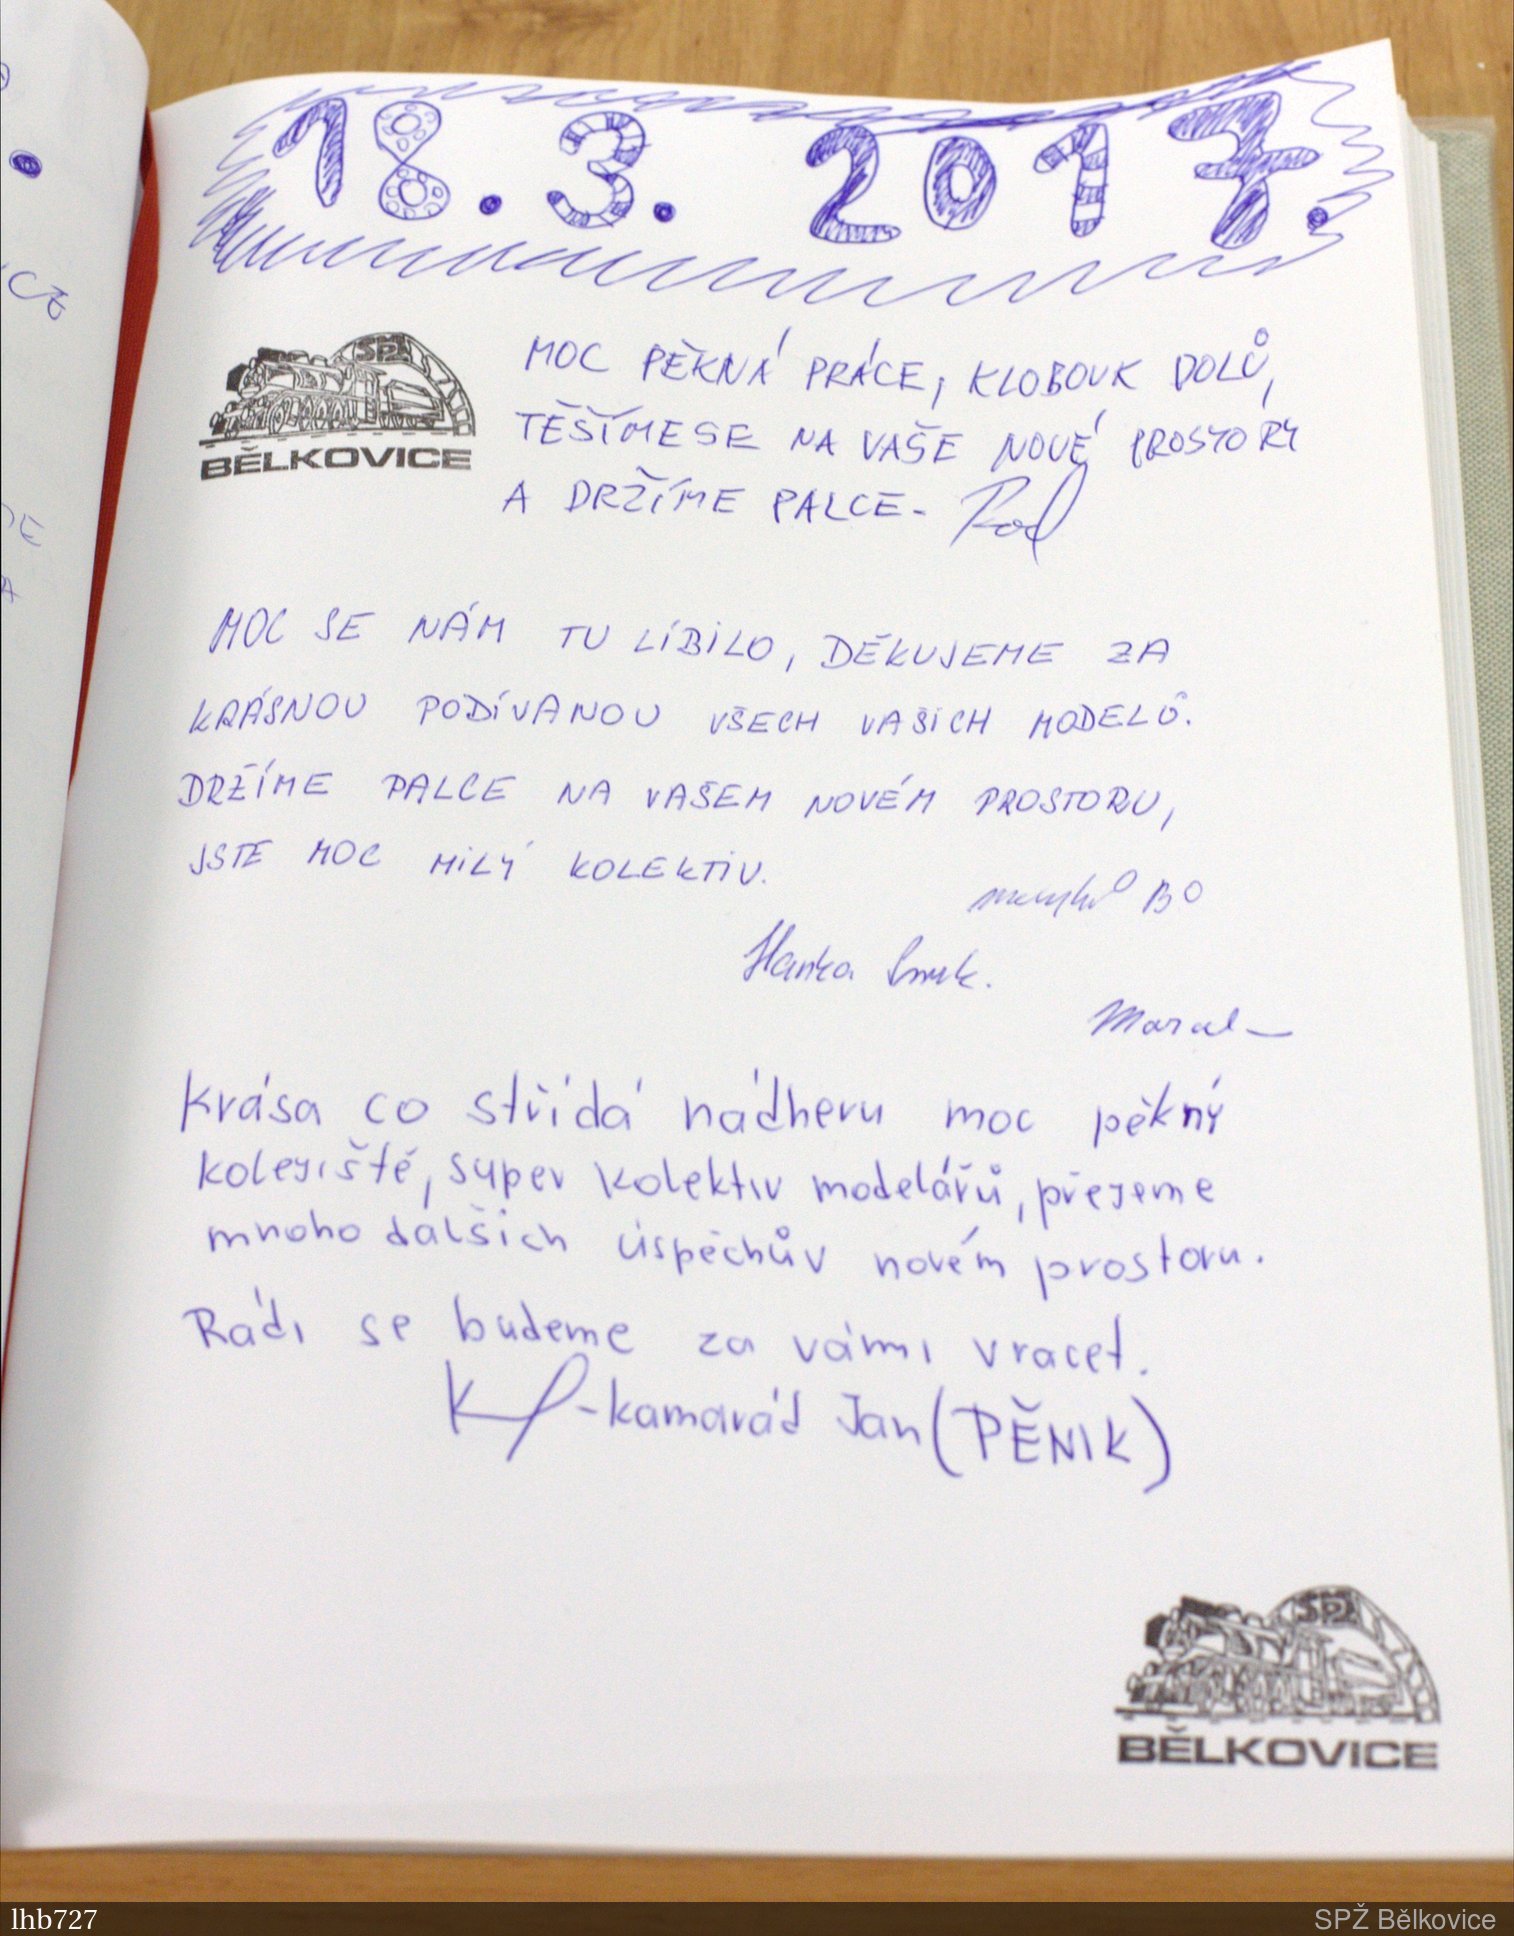 18. 3. 2017.
SPŽ
BĚLKOVICE
MOC PĚKNÁ PRÁCE, KLOBOUK DOLŮ,
TĚŠÍME SE NA VAŠE NOVÉ PROSTORY
A DRŽÍME PALCE-
MOC SE NÁM TU LÍBILO, DĚKUJEME ZA
KRÁSNOU PODÍVANOU VŠECH VAŠICH MODELŮ.
DRŽÍME PALCE NA VAŠEM NOVÉM PROSTORU,
JSTE MOC MILÝ KOLEKTIV.
Hanka
Krása co střídá nádheru moc pěkný
kolejiště, super kolektiv modelářů, přejeme
mnoho dalšich úspěchův novém prostoru.
Rádi se budeme za vámi vracet.
-kamarád Jan (PĚNIK)
SPŽ
BĚLKOVICE
lhb727
SPŽ Bělkovice